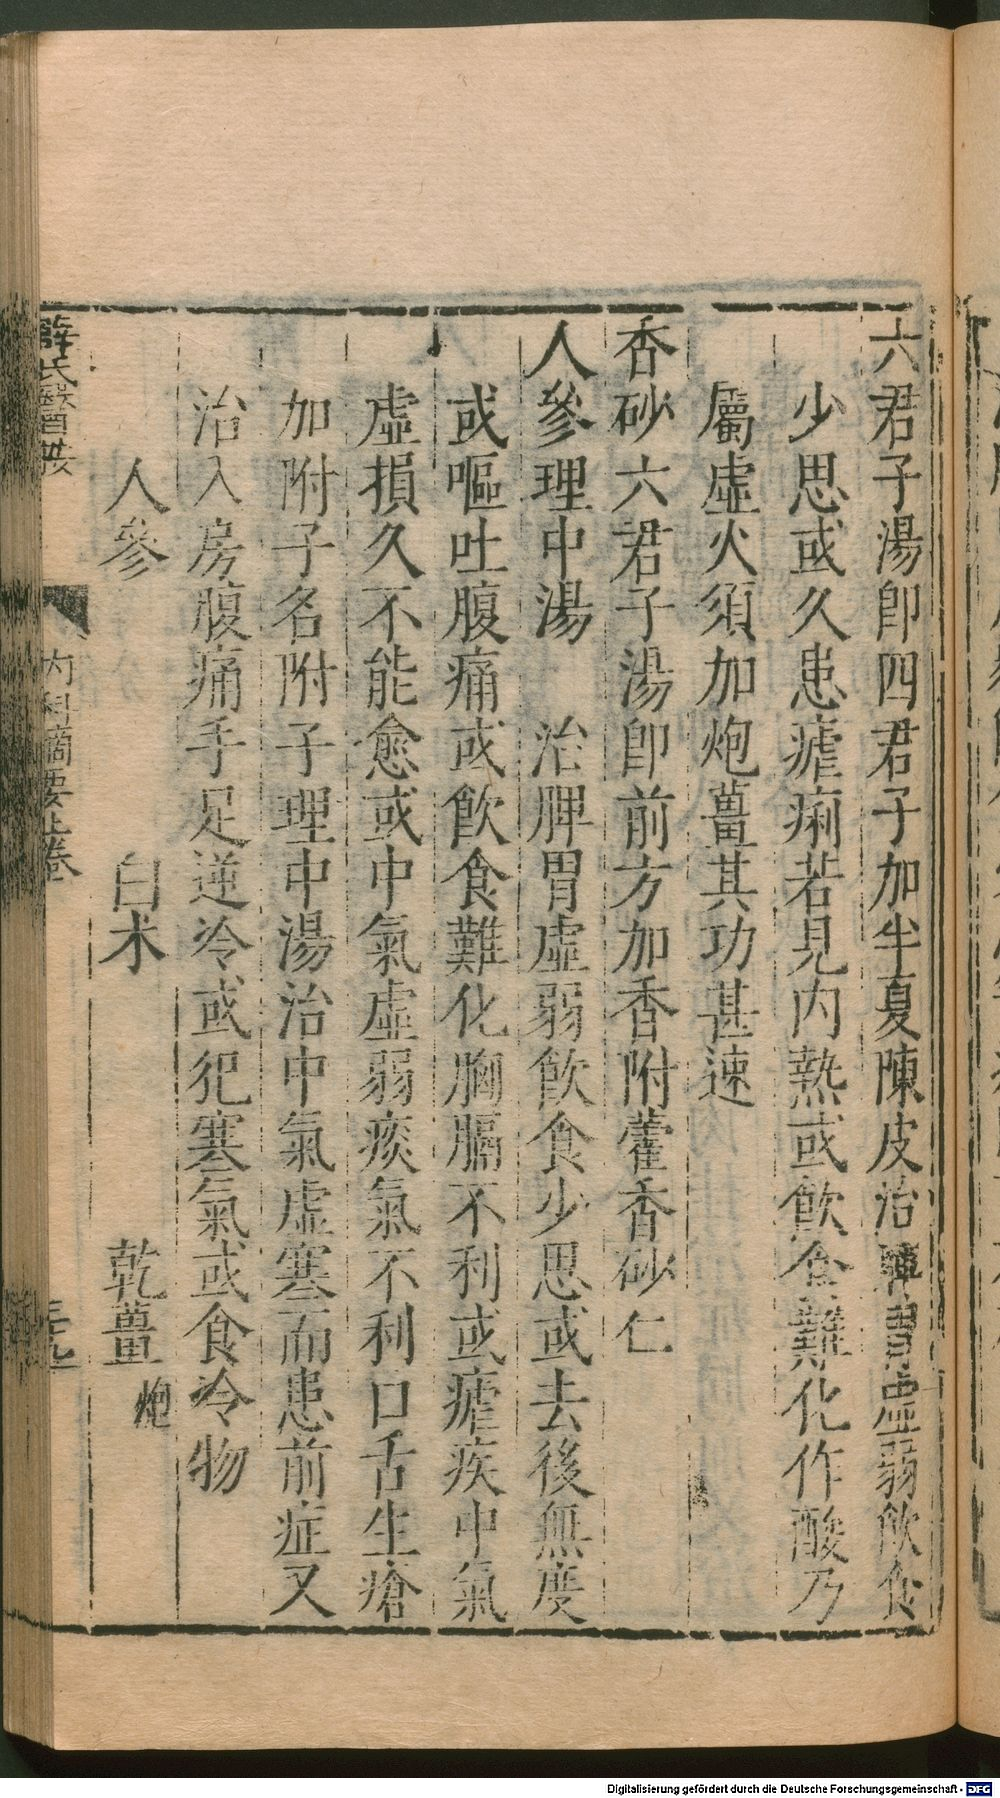 六君子湯即四君子加半夏陳皮治脾胃虛弱飲食
少思或久患瘧痢若見内熱或飲食難化作酸乃
屬虛火須加炮薑其功甚速
香砂六君子湯即前方加香附藿香砂仁
人參理中湯　治脾胃虛弱飲食少思或去後無度
或嘔吐腹痛或飲食難化胸膈不利或瘧疾中氣
虛損久不能愈或中氣虛弱痰氣不利口舌生瘡
加附子名附子理中湯治中氣虛寒而患前症又
治入房腹痛手足逆冷或犯寒氣或食冷物
人參　白术　乾薑炮
薛氏醫按　内科摘要上卷
Digitalisierung gefördert durch die Deutsche Forschungsgemeinschaft - DFG